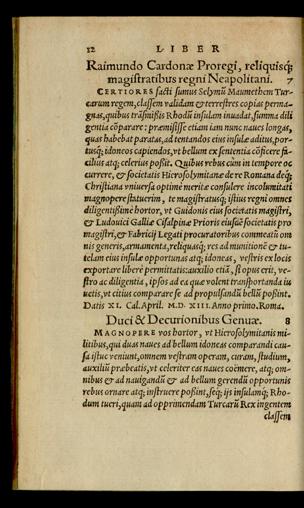 12 LIBER
Raimundo Cardonæ Proregi, reliquisq;
magistratibus regni Neapolitani. 7
CERTIORES facti sumus Selymũ Maumethem Tur-
carum regem, classem validam & terrestres copias permag-
nas, quibus trãsmissis Rhodũ insulam inuadat, summa dili
gentia cõparare: præmisisse etiam iam nunc naues longas,
quas habebat paratas, ad tentandos eius insulæ aditus, por-
tusq; idoneos capiendos, vt bellum ex sententia cõficere fa-
cilius atq; celerius possit. Quibus rebus cùm in tempore oc
currere, & societatis Hierosolymitanæ de re Romana deq;
Christiana vniuersa optimè meritæ consulere incolumitati
magnopere statuerim, te magistratusq; istius regni omnes
diligentissimè hortor, vt Guidonis eius societatis magistri,
& Ludouici Galliæ Cisalpinæ Prioris eiusdẽ societatis pro
magistri, & Fabricij Legati procuratoribus commeatũ om
nis generis, armamenta, reliquasq; res ad munitionẽ & tu-
telam eius insulæ opportunas atq; idoneas, vestris ex locis
exportare liberè permittatis: auxilio etiã, si opus erit, ve-
stro ac diligentia, ipsos ad ea quæ volent transportanda iu
uetis, vt citius comparare se ad propulsandũ bellũ possint.
Datis XI. Cal. April. M. D. XIII. Anno primo. Roma.
Duci & Decurionibus Genuæ. 8
MAGNOPERE vos hortor, vt Hierosolymitanis mi-
litibus, qui duas naues ad bellum idoneas comparandi cau-
sa istuc veniunt, omnem vestram operam, curam, studium,
auxiliũ præbeatis, vt celeriter eas naues coëmere, atq; om-
nibus & ad nauigandũ & ad bellum gerendũ opportunis
rebus ornare atq; instruere possint, seq; ijs insulamq; Rho-
dum tueri, quam ad opprimendam Turcarũ Rex ingentem
classem